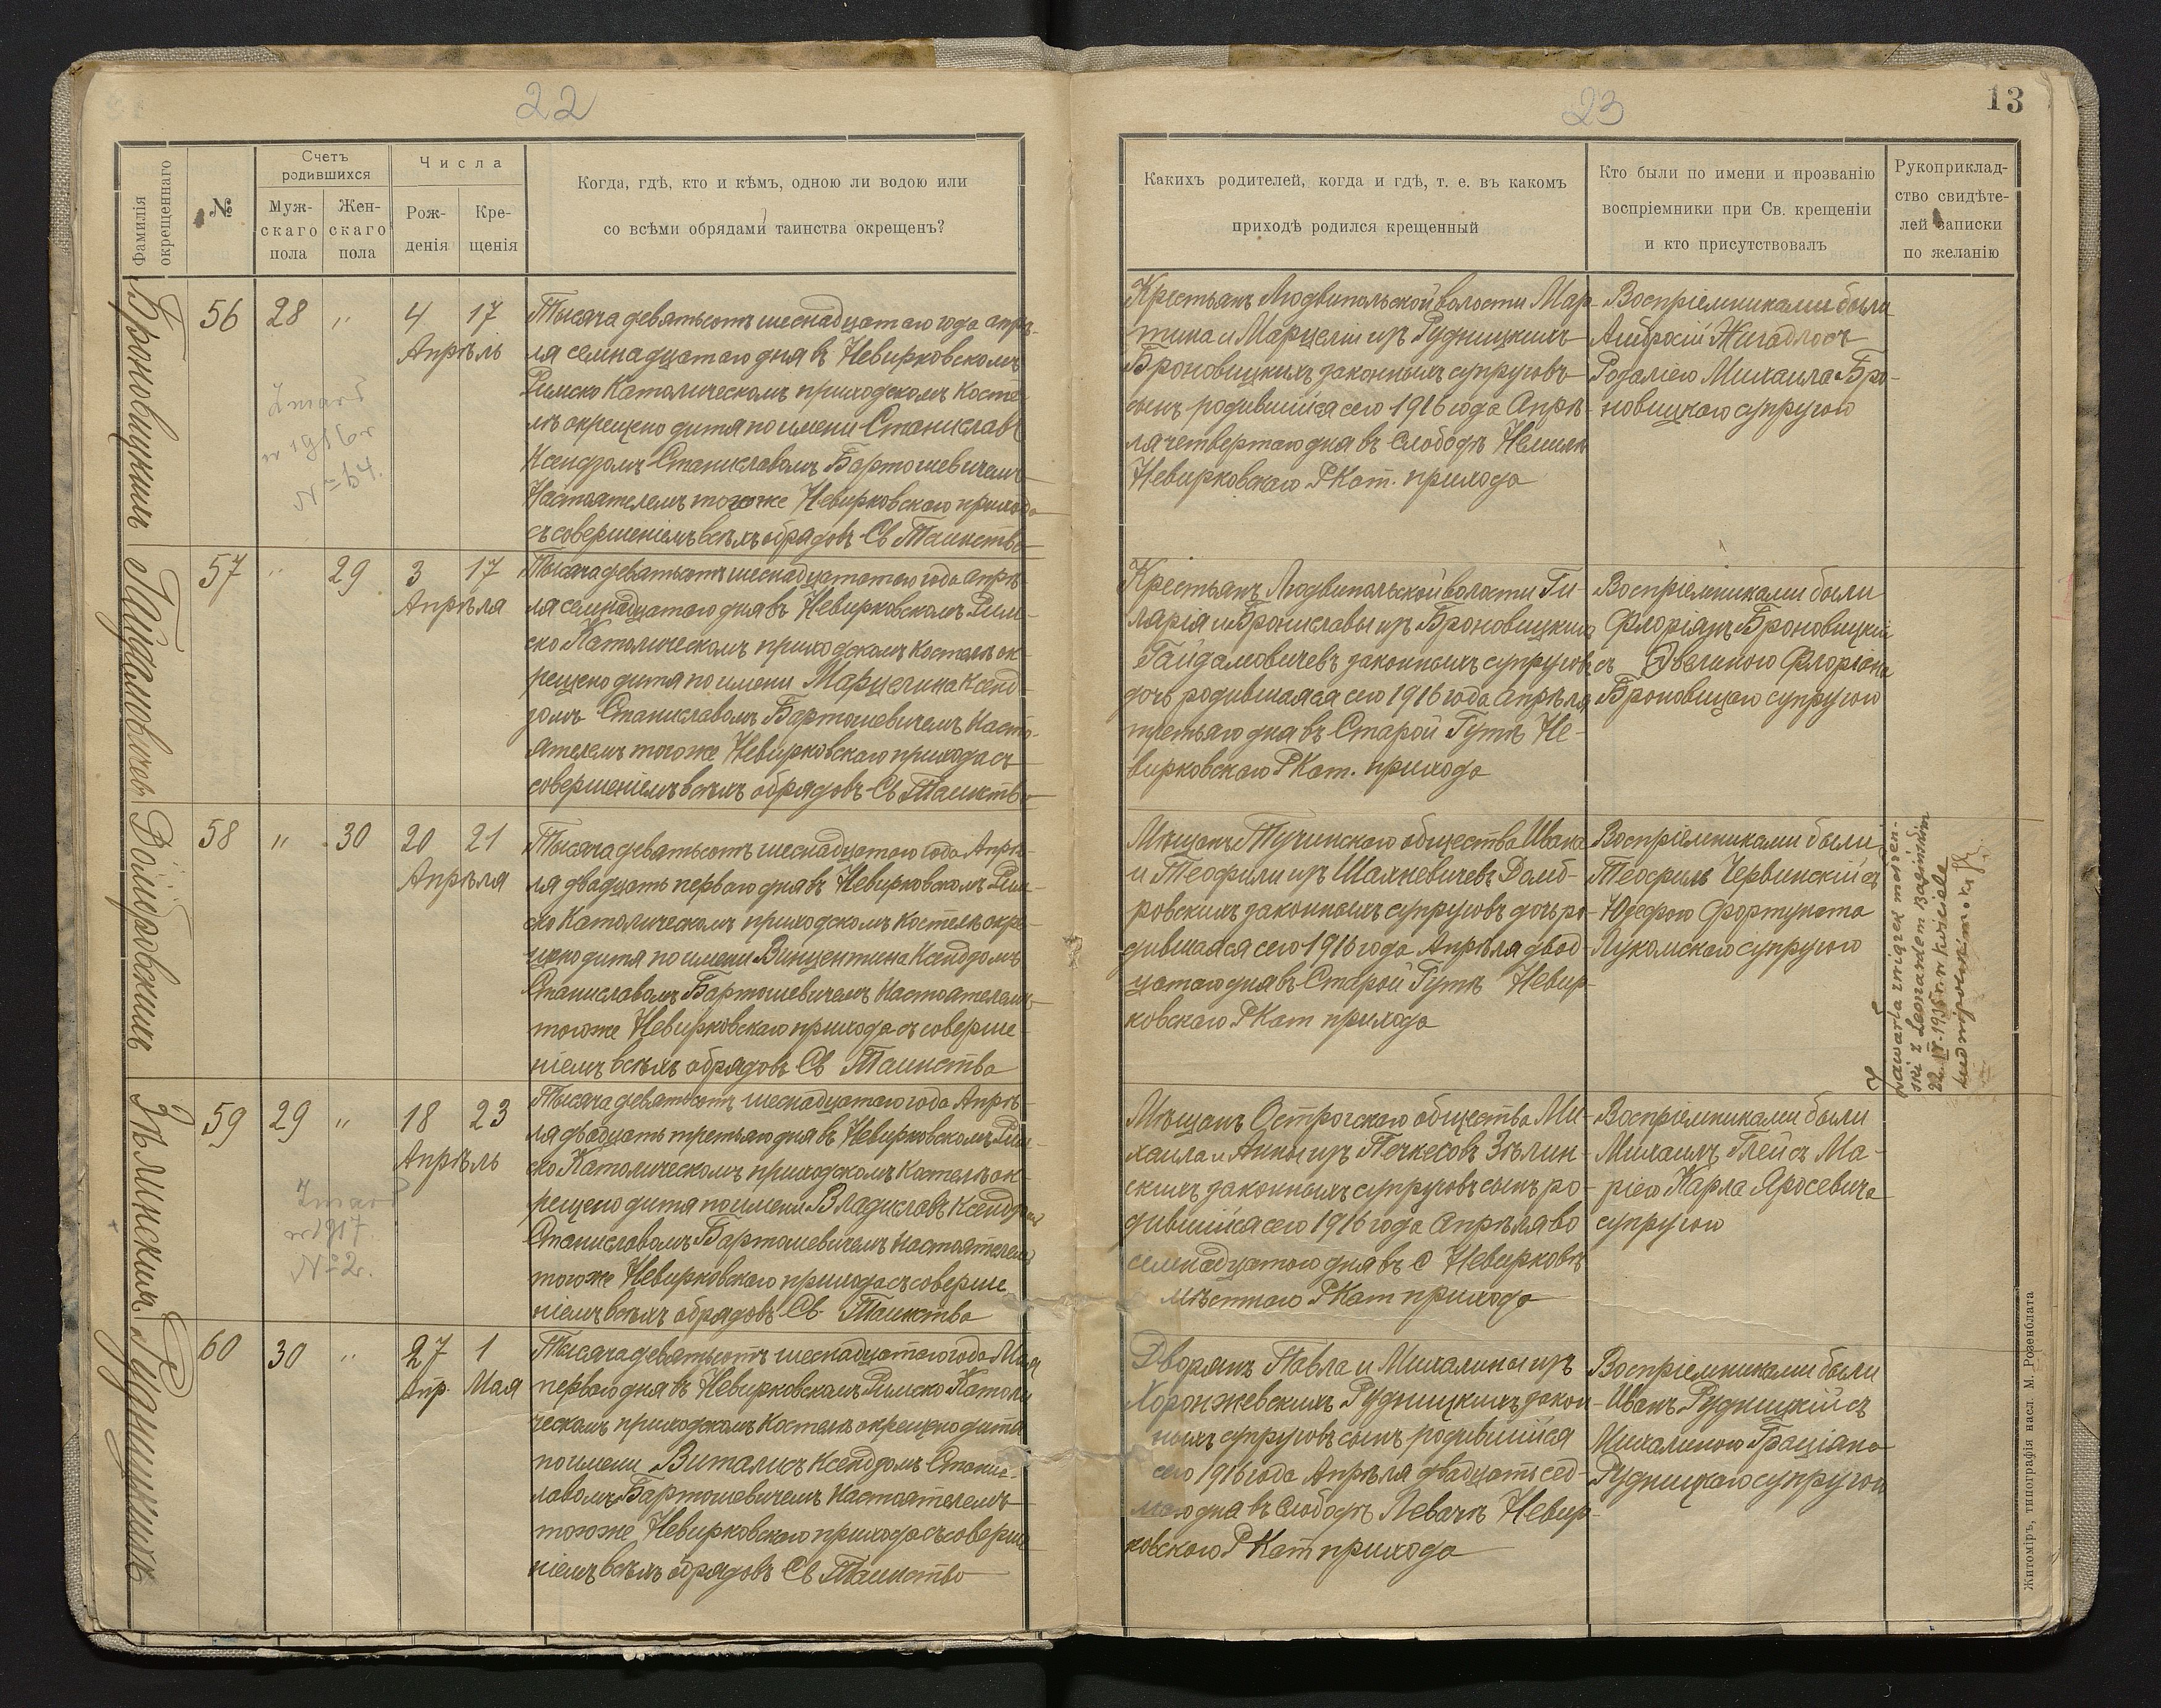 22
Фамилія окрещеннаго
№
Счетъ родившихся
Муж-
скаго
пола
Жен-
скаго
пола
Числа
Рож-
денія
Кре-
щенія
Когда, гдѣ, кто и кѣмъ, одною ли водою или
со всѣми обрядами таинства окрещенъ?
Броновицкимъ
56 28 " 4 17
Апрѣль
Zmarł
w 1916r
№ 14.
Тысяча девятьсотъ шеснадцатаго года апрѣ-
ля семнадцатаго дня въ Невирковскомъ
Римско Католическомъ приходскомъ Косте-
лѣ окрещено дитя по имени Станиславъ
Ксендзомъ Станиславомъ Бартошевичемъ
Настоятелемъ тогоже Невирковскаго прихода
съ совершеніемъ всѣхъ обрядовъ Св Таинства
Гайдамовичев
57 " 29 3 17
Апрѣля
Тысяча девятьсотъ шеснадцататаго года апрѣ-
ля семнадцатаго дня въ Невирковскомъ Рим-
ско Католическомъ приходскомъ костелѣ ок-
рещено дитя по имени Марцелина Ксенд-
зомъ Станиславомъ Бартошевичемъ Насто-
ятелемъ тогоже Невирковскаго прихода съ
совершеніемъ всѣхъ обрядовъ Св Таинства
58 " 30 20 21
Апрѣля
Тысяча девятьсотъ шеснадцатаго года Апрѣ-
ля двадцать перваго дня въ Невирковскомъ Рим-
ско Католическомъ приходскомъ костелѣ окре-
щено дитя по имени Винцентина Ксендзомъ
Станиславомъ Бартошевичемъ Настоятелемъ
тогоже Невирковскаго прихода съ соверше-
ніемъ всѣхъ обрядовъ Св Таинства
Зѣлинскимъ
59 29 " 18 23
Апрѣль
Zmarł
w 1917.
№ 2.
Тысяча девятьсотъ шеснадцатаго года Апрѣ-
ля двадцать третьяго дня въ Невирковскомъ Рим-
ско Католическомъ приходскомъ костелѣ ок-
рещено дитя по имени Владиславъ Ксендзомъ
Станиславомъ Бартошевичемъ Настоятелемъ
тогоже Невирковскаго прихода съ соверше-
ніемъ всѣхъ обрядовъ Св Таинства
Рудницкихъ
60 30 " 27 1
Апр. Мая
Тысяча девятьсотъ шеснадцатаго года Мая
перваго дня въ Невирковскомъ Римско Католи-
ческомъ приходскомъ костелѣ окрещено дитя
по имени Виталисъ Ксендзомъ Станис-
лавомъ Бартошевичемъ Настоятелемъ
тогоже Невирковскаго прихода съ соверше-
ніемъ всѣхъ обрядовъ Св Таинства
23
13
Какихъ родителей, когда и гдѣ, т. е. въ какомъ
приходѣ родился крещенный
Кто были по имени и прозванію
воспріемники при Св. крещеніи
и кто присутствовалъ
Рукоприклад-
ство свидѣте-
лей записки
по желанію
Крестьянъ Людвипольской волости Мар-
тина и Марцеліи изъ Рудницкихъ
Броновицкихъ законныхъ супруговъ
сынъ родившійся сего 1916 года Апрѣ-
ля четвертаго дня въ Слободѣ
Невирковскаго РКат. прихода
Воспріемниками были
Амбросій съ
Розаліею Михаила Бро-
новицкаго супругою
Крестьянъ Людвипольской волости Ги-
ларія и Брониславы изъ Броновицкихъ
Гайдамовичевъ законныхъ супруговъ
дочь родившаяся сего 1916 года Апрѣля
третьяго дня въ Старой Гутѣ Не-
вирковскаго РКат. прихода
Воспріемниками были
Флоріянъ Броновицкій
съ Эвелиною Флоріана
Броновицаго супругою
Мѣщанъ Тучинскаго общества Ивана
и Теофили изъ Шахневичевъ Домб-
ровскихъ законныхъ супруговъ дочь ро-
дившаяся сего 1916 года Апрѣля двад-
цатаго дня въ Старой Гутѣ Невир-
ковскаго РКат прихода
Воспріемниками были
Теофиль Червинскій съ
Юзефою Фортуната
Лукомскаго супругою
Zawarła związek małżeń-
ski z Leonardem Bagińskim
22.IV.1935 r. w kościele
Мѣщанъ Острогскаго общества Ми-
хаила и Анны изъ Печкесовъ Зѣлин-
скихъ законныхъ супруговъ сынъ ро-
дившійся сего 1916 года Апрѣля во
семнадцатаго дня въ С Невирковѣ
мѣстнаго РКат прихода
Воспріемниками были
Михаилъ Глей съ Ма-
ріею Карла Яросевича
супругою
Дворянъ Павла и Михалины изъ
Хоронжевскихъ Рудницкихъ закон-
ныхъ супруговъ сынъ родившійся
сего 1916 года Апрѣля двадцать сед-
маго дня въ слободѣ Левачѣ Невир-
ковскаго РКат прихода
Воспріемниками были
Иванъ Рудницкій съ
Михалиною Граціана
Рудницкаго супругою
Житоміръ, типографія насл. М. Розенблата